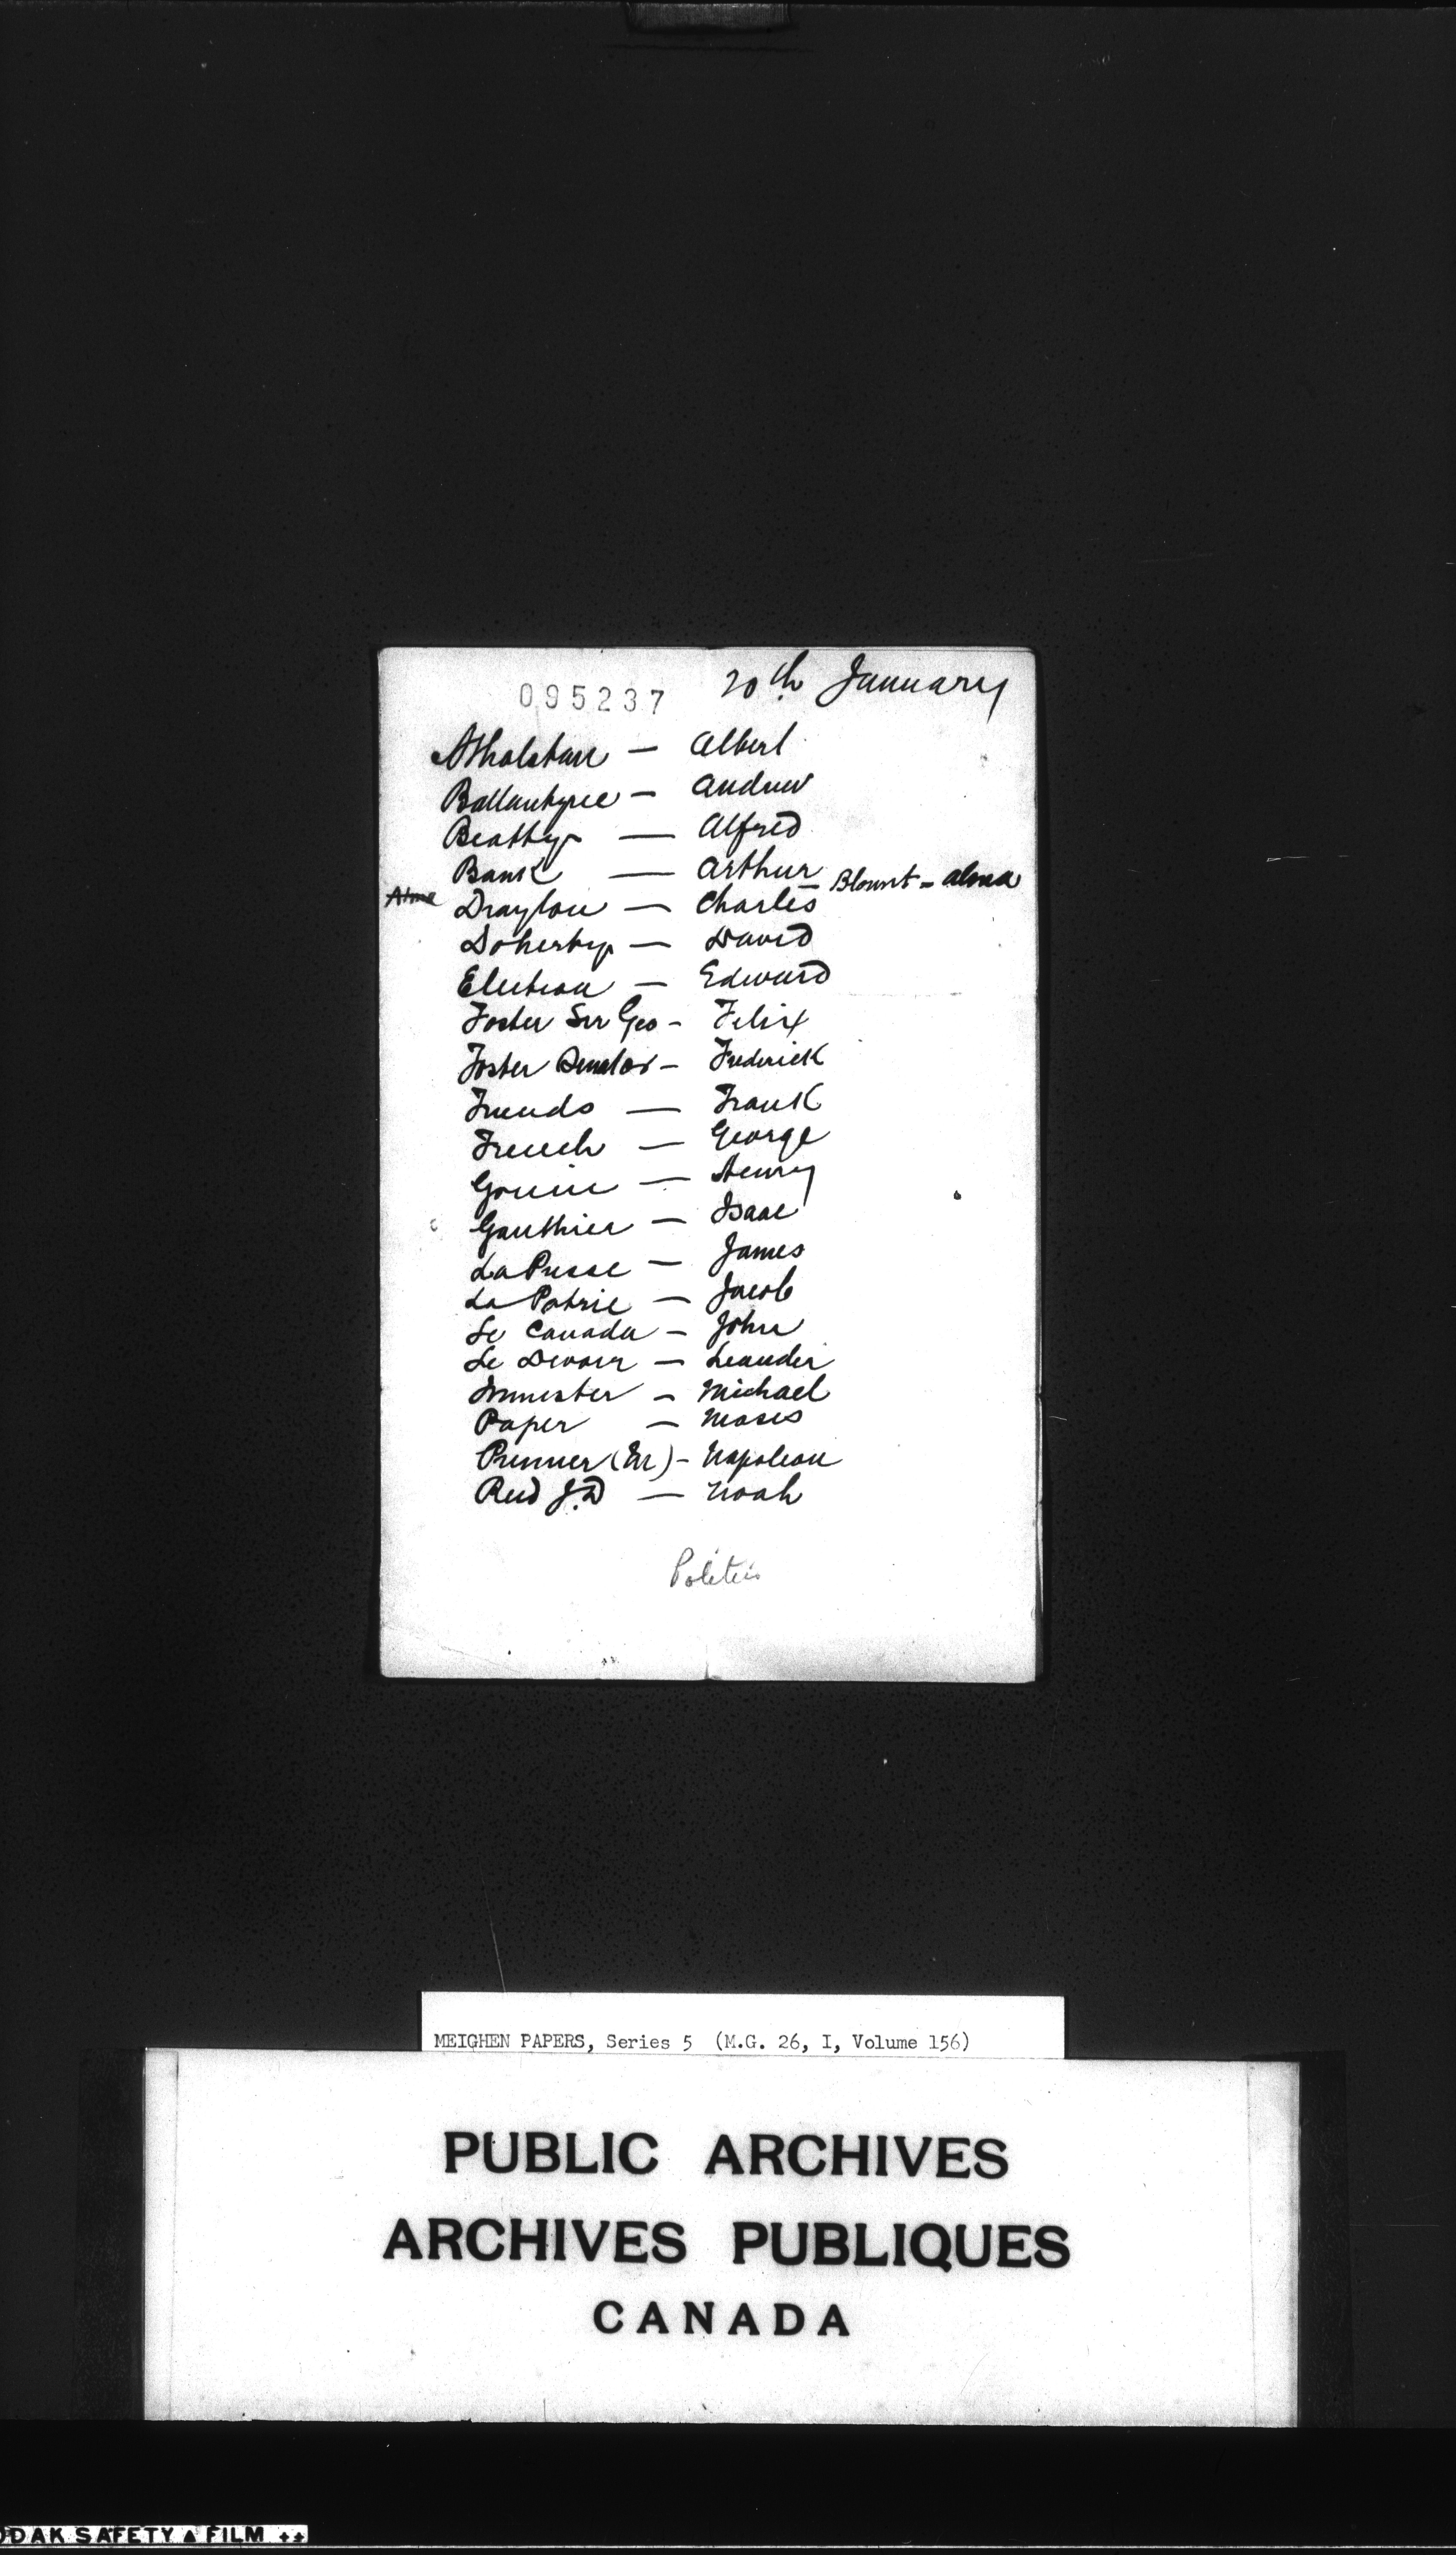 095237 20th January
Atholstan — Albert
Ballantyne — Andrew
Beatty — Alfred
Bank — Arthur Blount - Alma
Alma Drayton — Charles
Doherty — David
Election — Edward
Foster Sir Geo - Felix
Foster Senator - Frederick
Friends — Frank
French — George
Gouin — Henry
Gauthier — Isaac
La Presse — James
La Patrie — Jacob
Le Canada - John
Le Devoir — Leander
Minister - Michael
Paper — Moses
Premier (Mr) - Napoleon
Reid J.D — Noah
Politics
MEIGHEN PAPERS, Series 5 (M.G. 26, I, Volume 156)
PUBLIC ARCHIVES
ARCHIVES PUBLIQUES
CANADA
ODAK SAFETY ▲ FILM ++